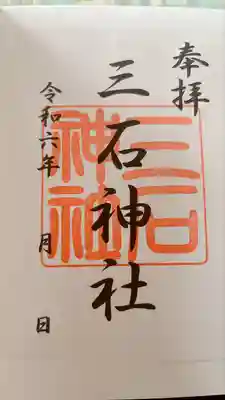 奉拝
三石神社
令和六年 月 日
三石
神社